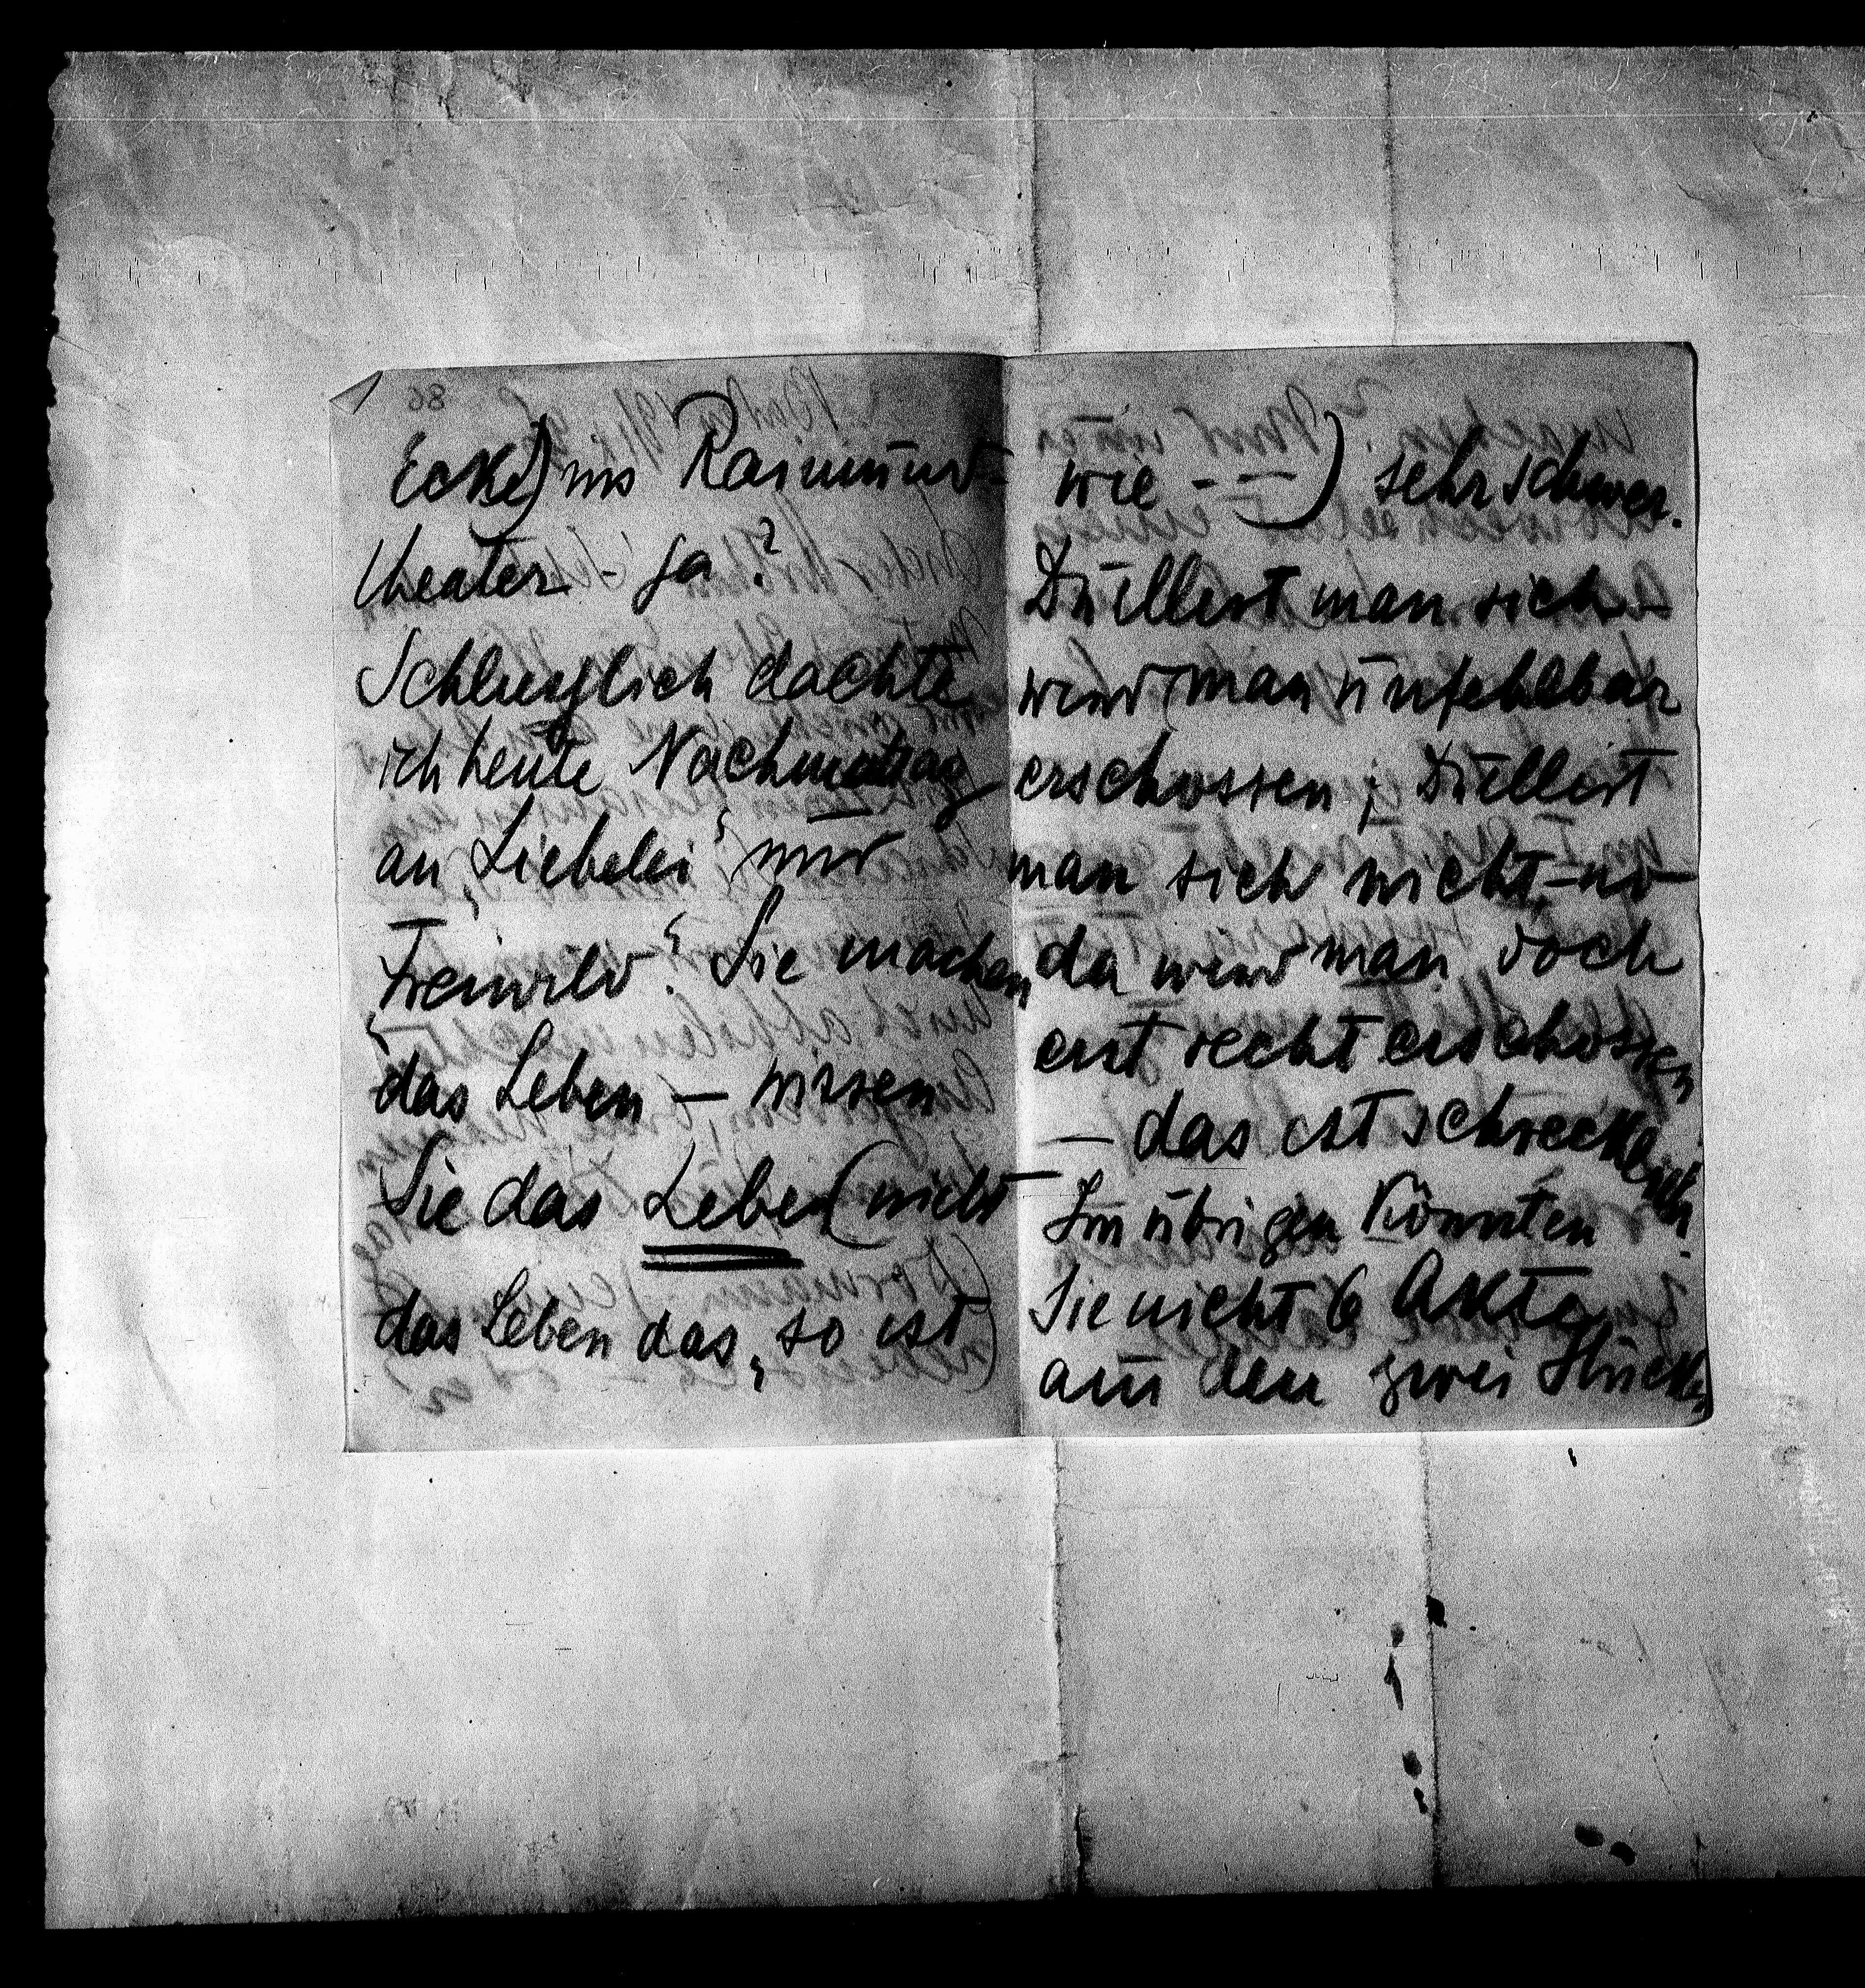 Ecke) ins Raimund-
theater – ja?
Schliesslich dachte
ich heute Nachmittag
an „Liebelei“ und
„Freiwild“. Sie machen
das Leben – wissen
Sie das Leben (nicht
das Leben das „so ist
wie – – –) sehr schwer.
Duellirt man sich –
wird man unfehlbar
erschossen; Duellirt
man sich nicht – no
da wird man doch
erst recht erschossen
– das ist schrecklich.
– Im übrigen könnten
Sie nicht 6 Akte
aus den zwei Stücken